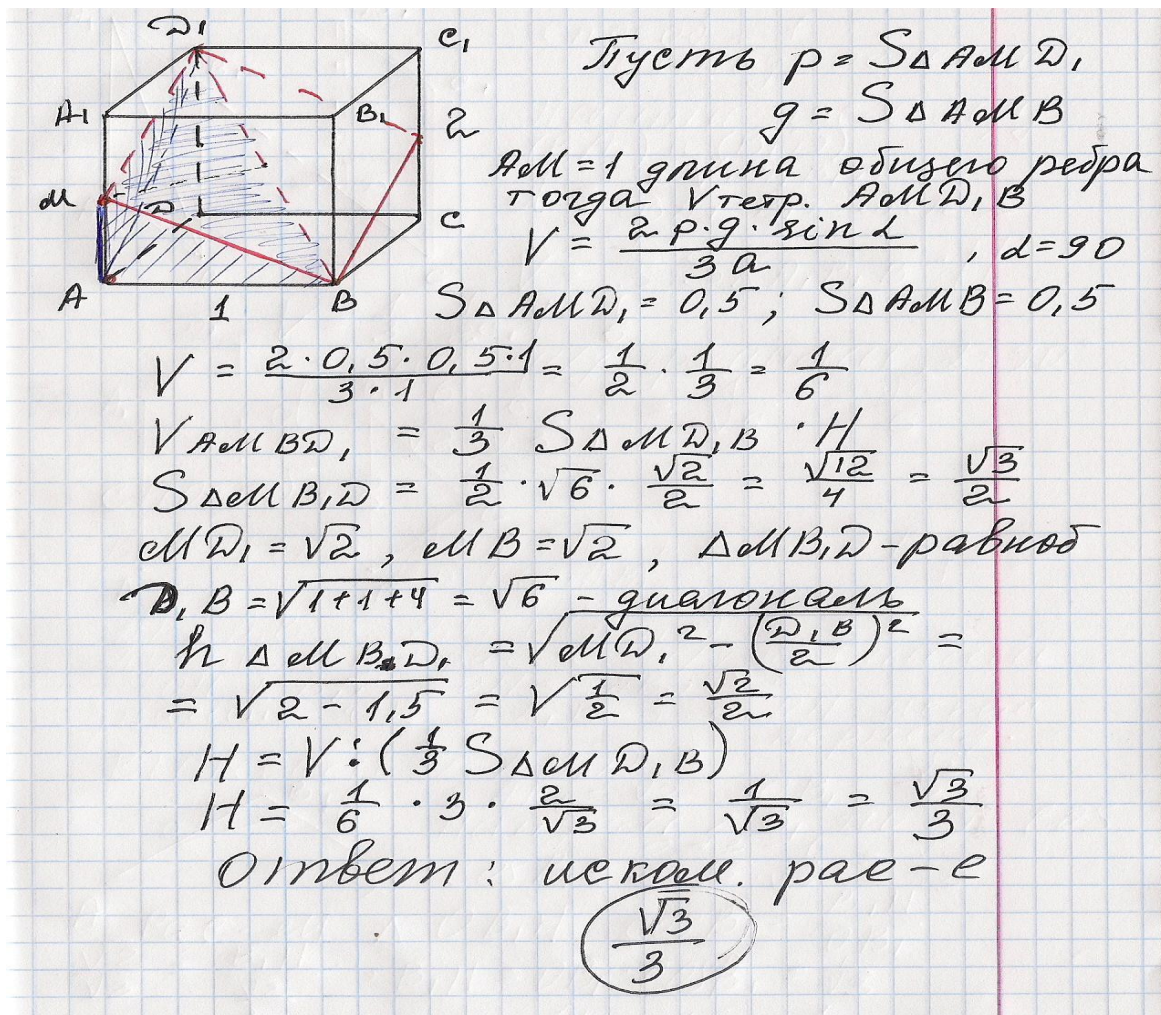 D₁ C₁
A₁ B₁ 2
M D C
A 1 B
Пусть p = S△AMD₁
g = S△AMB
AM = 1 длина общего ребра
тогда Vтетр. AMD₁B
V = (2p·g·sin α)/(3a), α = 90
S△AMD₁ = 0,5 ; S△AMB = 0,5
V = (2·0,5·0,5·1)/(3·1) = 1/2 · 1/3 = 1/6
V AMBD₁ = 1/3 S△MD₁B · H
S△MB₁D = 1/2 · √6 · √2/2 = √12/4 = √3/2
MD₁ = √2 , MB = √2 , △MB₁D – равноб
D₁B = √(1+1+4) = √6 – диагональ
h △MB D₁ = √(MD₁² – (D₁B/2)²) =
= √(2 – 1,5) = √(1/2) = √2/2
H = V : (1/3 S△MD₁B)
H = 1/6 · 3 · 2/√3 = 1/√3 = √3/3
Ответ : иском. рас-е
√3/3